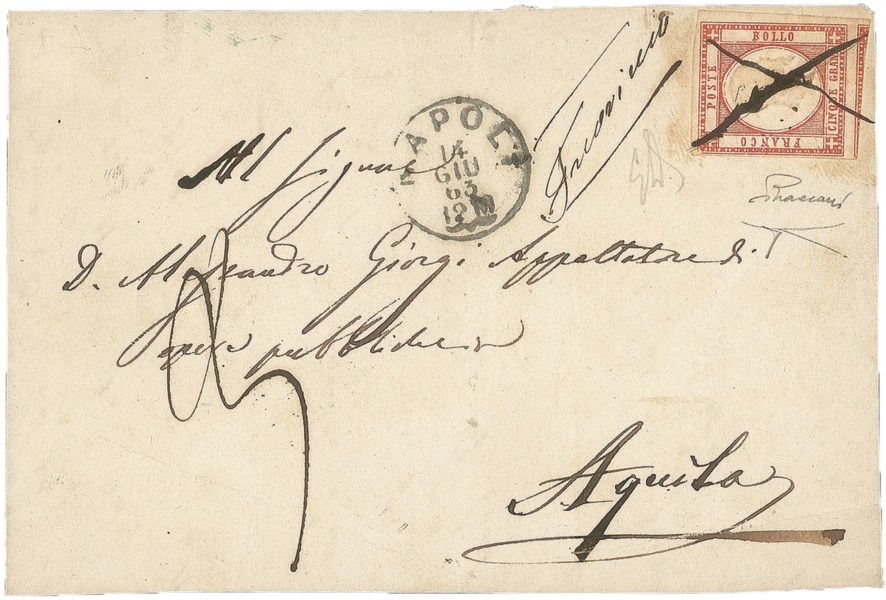 BOLLO
POSTE
CINQUE GRANA
FRANCO
NAPOLI
14
GIU
63
12 M
Al Signore
D. Alessandro Giorgi Appaltatore di
opere pubbliche in
Aquila